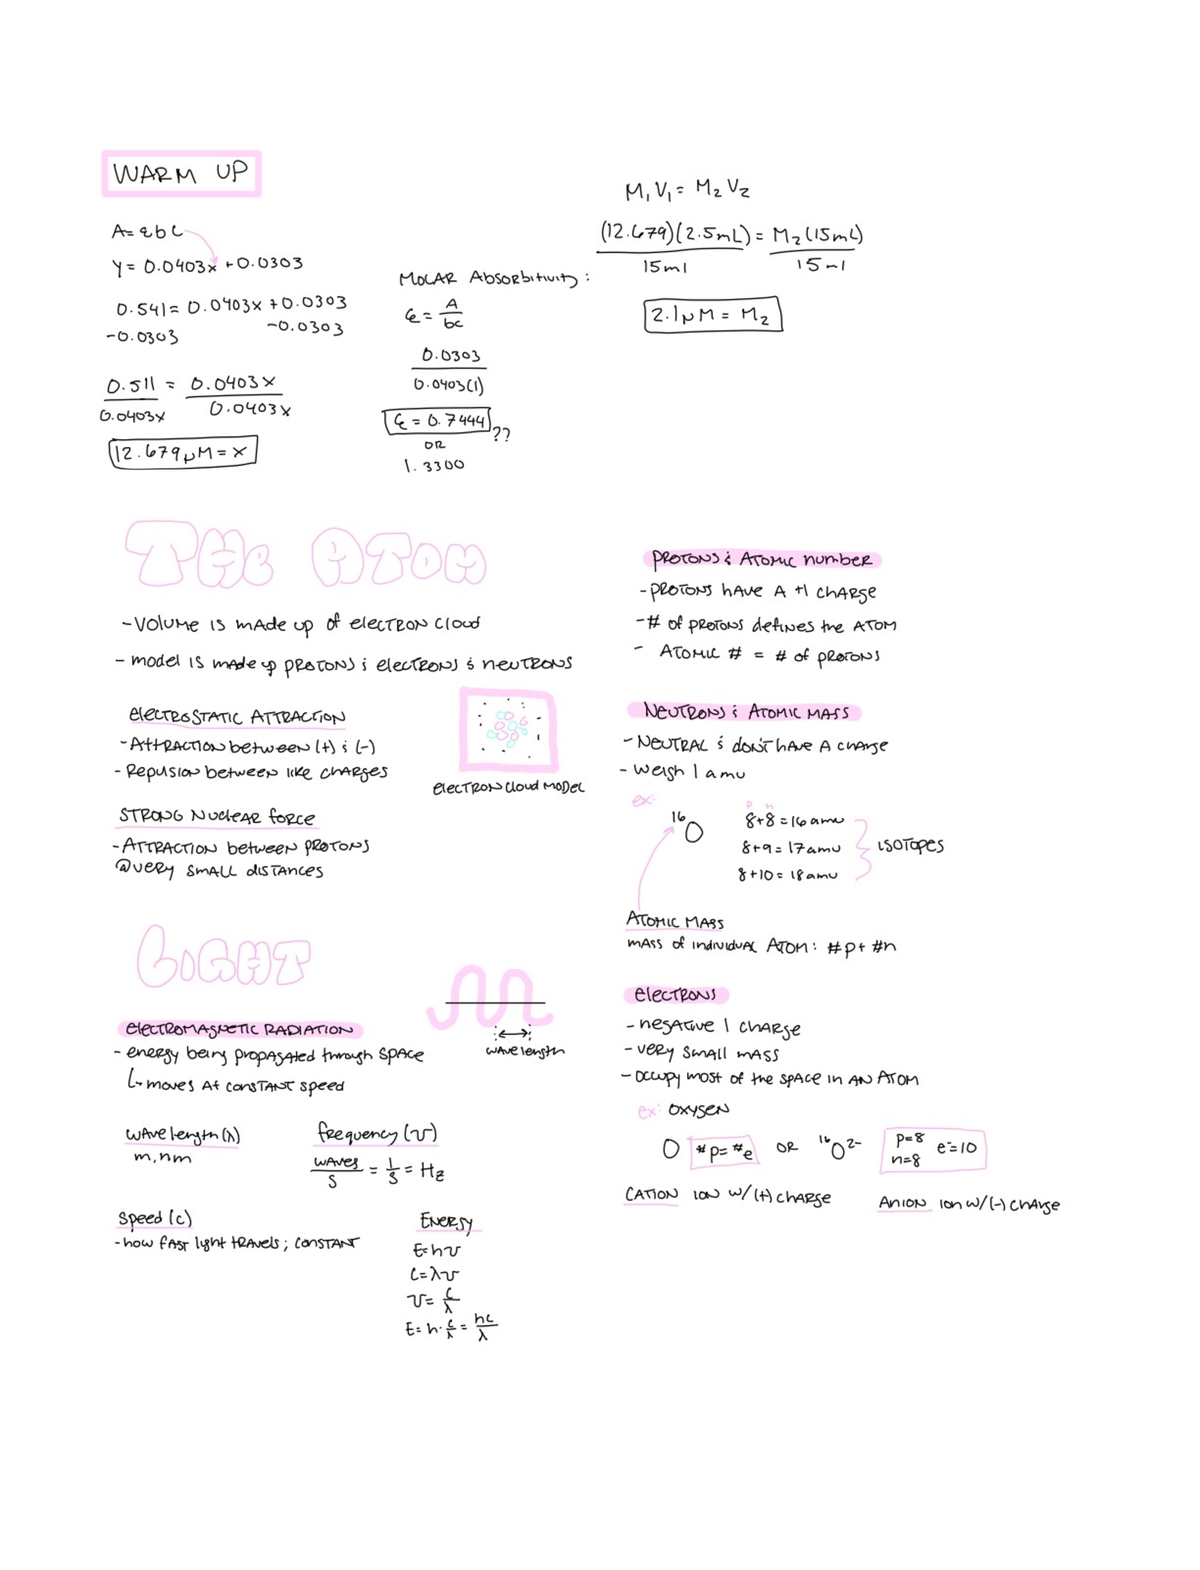 WARM UP
A = εbc
y = 0.0403x + 0.0303
0.541 = 0.0403x + 0.0303
-0.0303 -0.0303
0.511 = 0.0403x
0.0403x 0.0403x
12.679 μM = x
MOLAR Absorbitivity:
ε = A/bc
0.0303
0.0403(1)
ε = 0.7444 ??
OR
1.3300
M₁V₁ = M₂V₂
(12.679)(2.5mL) = M₂(15mL)
15ml 15ml
2.1μM = M₂
THE ATOM
- VOLUME IS MADE UP OF ELECTRON CLOUD
- MODEL IS MADE UP PROTONS & ELECTRONS & NEUTRONS
ELECTROSTATIC ATTRACTION
- ATTRACTION between (+) & (-)
- Repulsion between like CHARGES
ELECTRON CLOUD MODEL
STRONG NUCLEAR FORCE
- ATTRACTION between PROTONS
@ VERY SMALL DISTANCES
PROTONS & ATOMIC number
- PROTONS HAVE A +1 CHARGE
- # of PROTONS defines the ATOM
- ATOMIC # = # of PROTONS
NEUTRONS & ATOMIC MASS
- NEUTRAL & DON'T HAVE A CHARGE
- Weigh 1 amu
ex:
¹⁶O
p n
8+8 = 16 amu
8+9 = 17 amu
8+10 = 18 amu
ISOTOPES
ATOMIC MASS
MASS of individual ATOM: #p + #n
LIGHT
ELECTROMAGNETIC RADIATION
- energy being propagated through SPACE
↳ moves At constant speed
wavelength
wavelength (λ)
m, nm
frequency (ν)
waves/s = 1/s = Hz
Speed (c)
- how FAST light TRAVELS; CONSTANT
ENERGY
E = hν
c = λν
ν = c/λ
E = h · c/λ = hc/λ
ELECTRONS
- negative 1 charge
- very small mass
- occupy most of the space in AN ATOM
ex: OXYSEN
O #p = #e OR ¹⁶O²⁻ p=8 n=8 e⁻=10
CATION ION W/ (+) CHARGE
ANION ION W/ (-) CHARGE